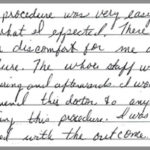 procedure was very easy
what I expected! There
discomfort for me a
ure. The whole staff w
uring and afterwards. I wo
mend this doctor to any
ing this procedure. I was
ed with the outcome.